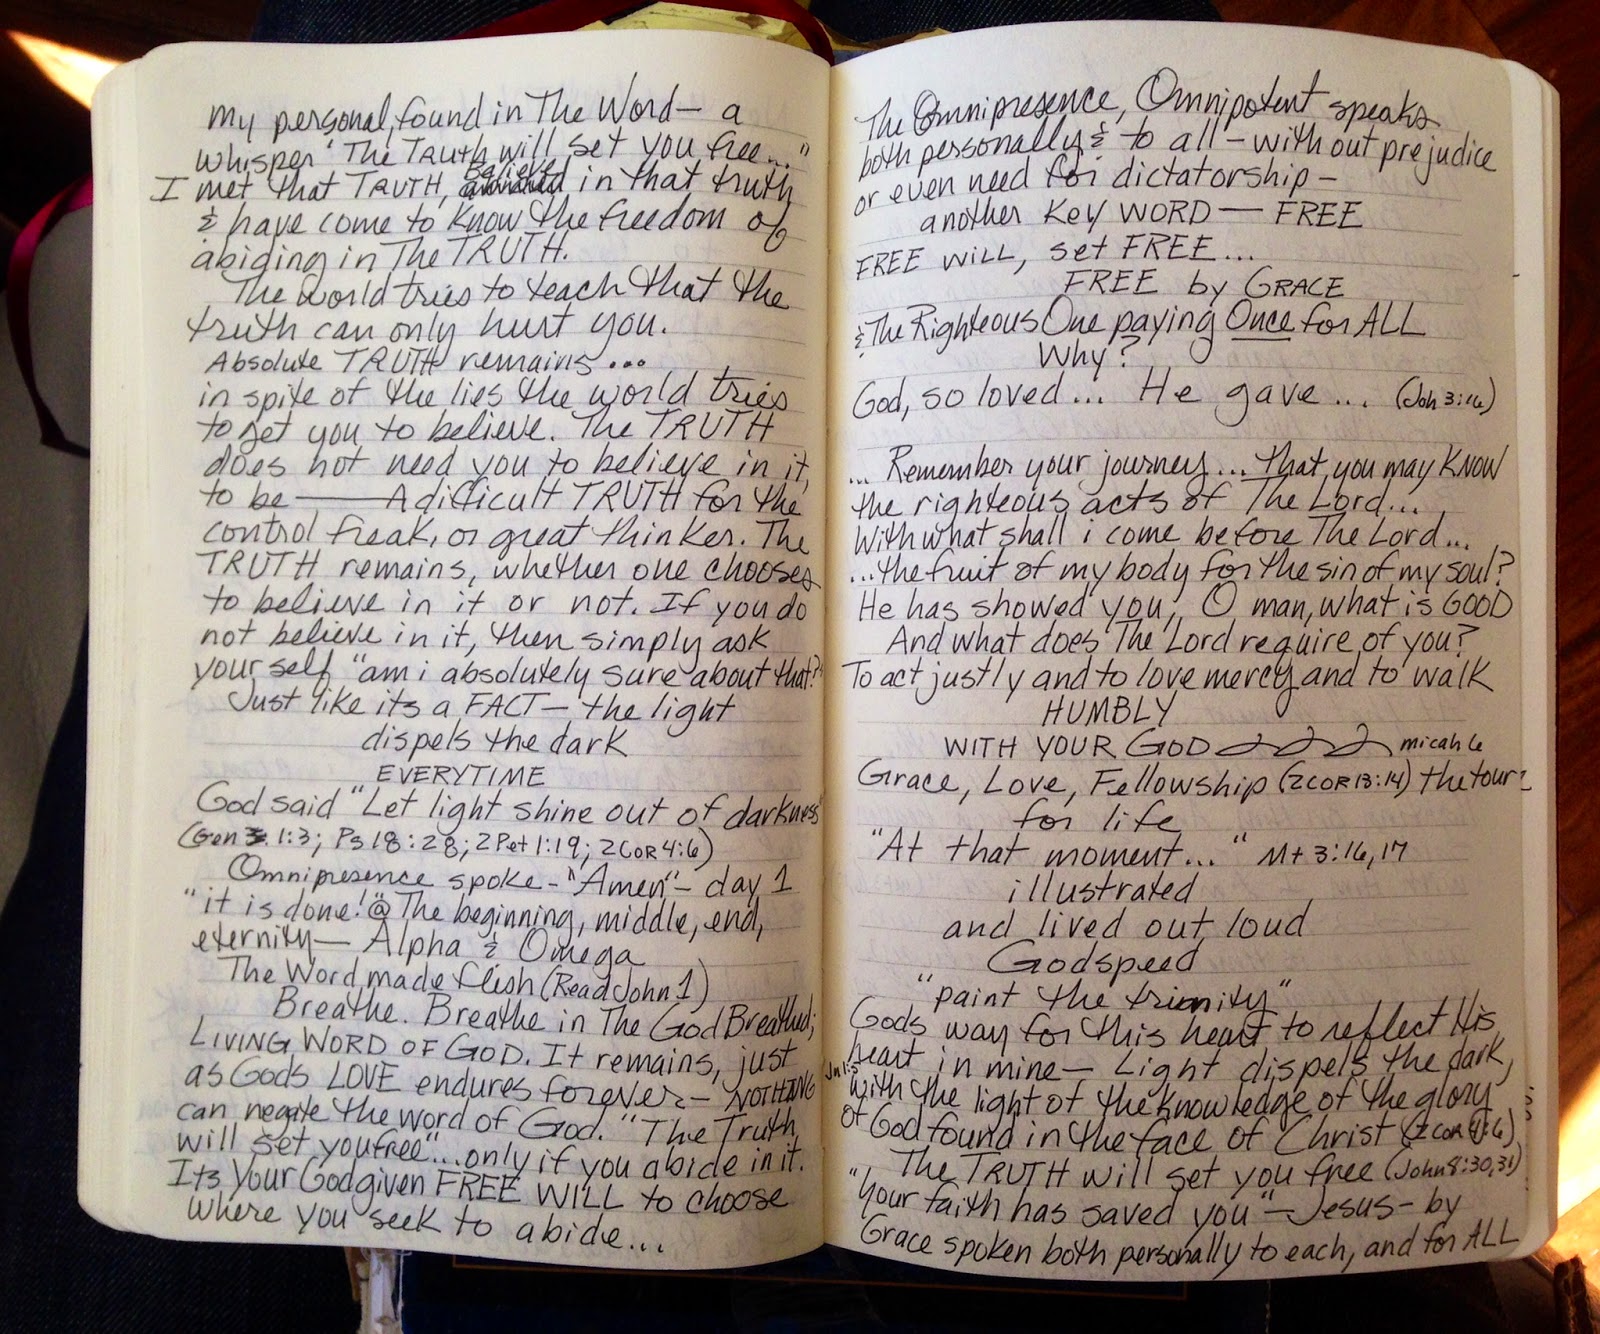 my personal, found in The Word— a
whisper "The TRUTH will set you free..."
I met that TRUTH, Believed in that truth
& have come to know the freedom of
abiding in The TRUTH.
The world tries to teach that the
truth can only hurt you.
Absolute TRUTH remains...
in spite of the lies the world tries
to get you to believe. The TRUTH
does not need you to believe in it,
to be —— A difficult TRUTH for the
control freak, or great thinker. The
TRUTH remains, whether one chooses
to believe in it or not. If you do
not believe in it, then simply ask
your self "am i absolutely sure about that?"
Just like its a FACT— the light
dispels the dark
EVERYTIME
God said "Let light shine out of darkness"
(Gen 1:3; Ps 18:28; 2Pet 1:19; 2COR 4:6)
Omnipresence spoke - "Amen" - day 1
"it is done!" @ The beginning, middle, end,
eternity— Alpha & Omega
The Word made flesh (Read John 1)
Breathe. Breathe in The God Breathed;
LIVING WORD OF GOD. It remains, just
as Gods LOVE endures forever— NOTHING
can negate the word of God. "The Truth
will set you free"...only if you abide in it.
Its Your God given FREE WILL to choose
where you seek to abide...
The Omnipresence, Omnipotent speaks
both personally & to all - with out prejudice
or even need for dictatorship -
another Key WORD — FREE
FREE WILL, set FREE...
FREE by GRACE
& The Righteous One paying Once for ALL
Why?
God, so loved... He gave... (Joh 3:16)
... Remember your journey... that you may KNOW
the righteous acts of The Lord...
With what shall i come before The Lord...
...the fruit of my body for the sin of my soul?
He has showed you, O man, what is GOOD
And what does The Lord require of you?
To act justly and to love mercy and to walk
HUMBLY
WITH YOUR GOD micah 6
Grace, Love, Fellowship (2COR13:14) the tour
for life
"At that moment..." Mt 3:16,17
illustrated
and lived out loud
Godspeed
"paint the trinity"
Gods way for this heart to reflect His
heart in mine— Light dispels the dark,
Jn 1:5 with the light of the knowledge of the glory
of God found in the face of Christ (2COR 4:6)
The TRUTH will set you free (John 8:30,31)
"Your faith has saved you" - Jesus - by
Grace spoken both personally to each, and for ALL